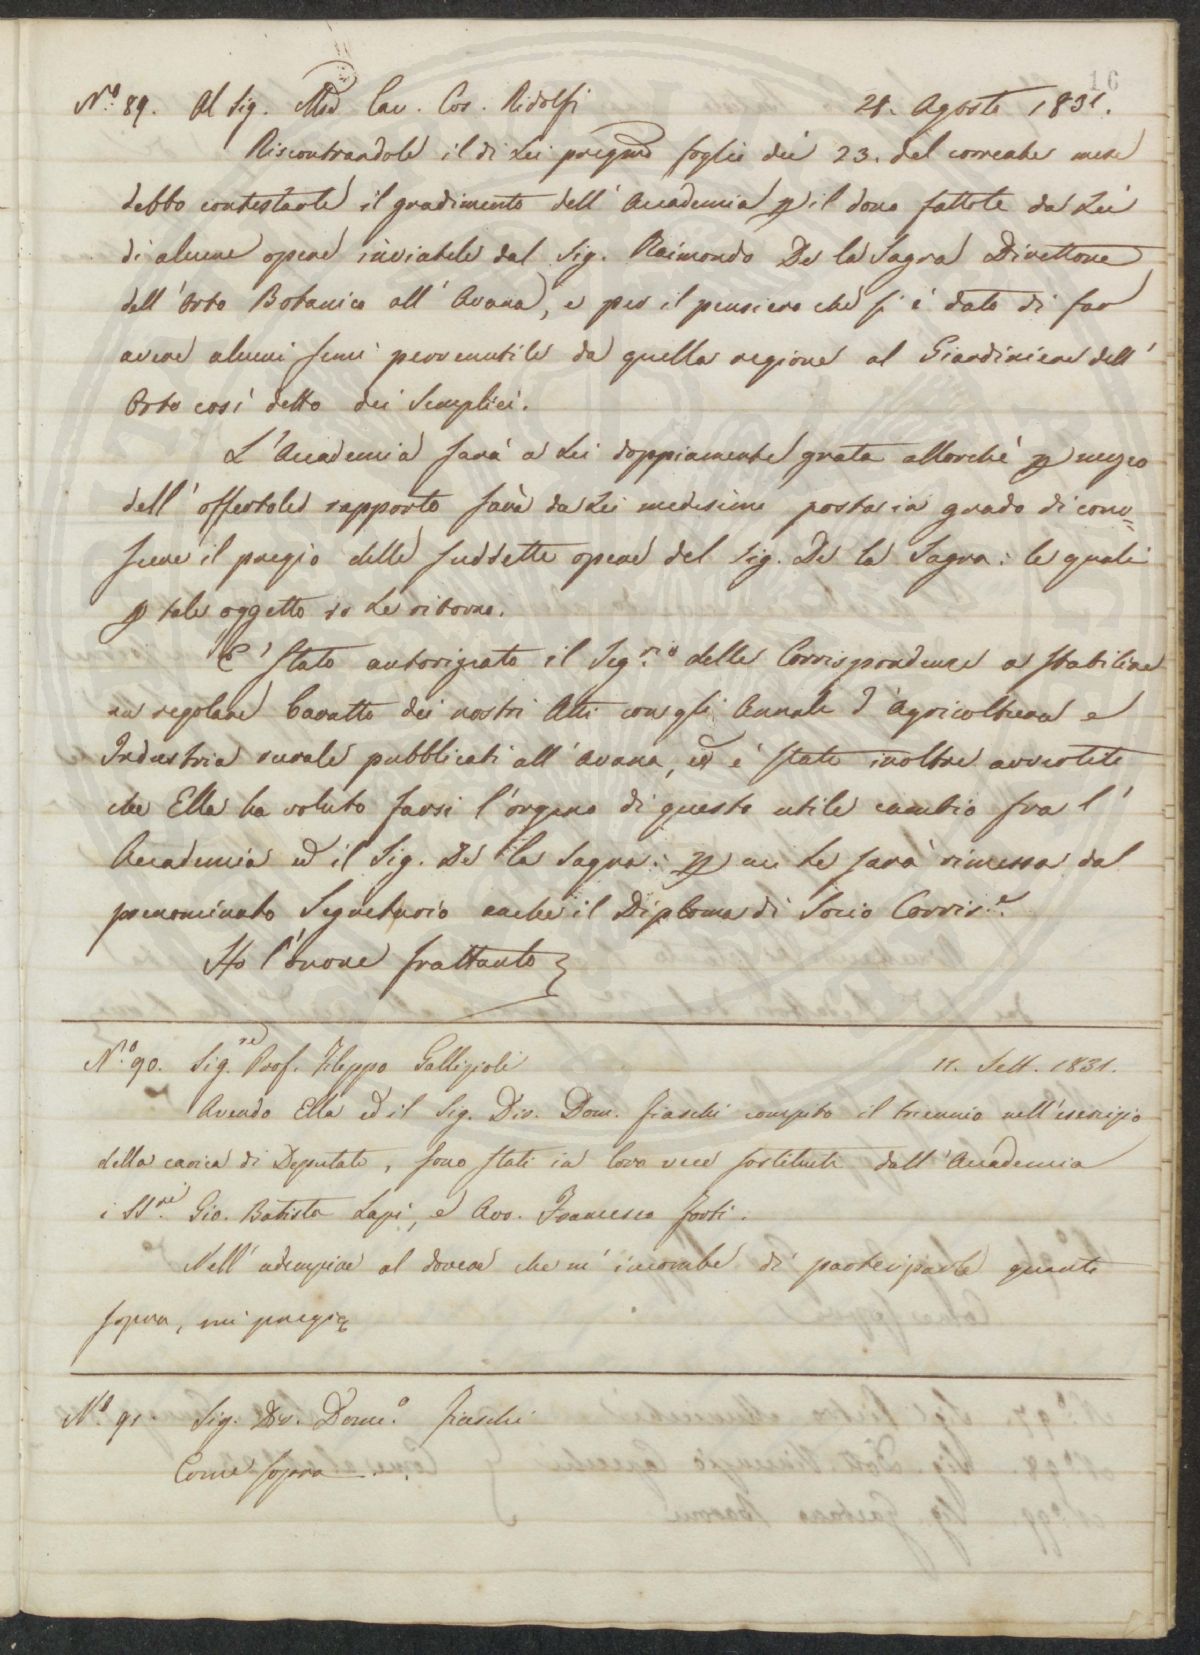 16
N.º 89. Al Sig. Mse Cav. Cos. Ridolfi 28. Agosto 1831.
Riscontrandole il di Lei pregmo foglio dei 23. del corrente mese
debbo contestarle il gradimento dell' Accademia p il dono fattole da Lei
di alcune opere inviatele dal Sig. Raimondo De la Sagra Direttore
dell' Orto Botanico all' Avana, e per il pensiero che si è dato di far
avere alcuni semi pervenutile da quella regione al Giardiniere dell'
Orto così detto dei Semplici.
L'Accademia sarà a Lei doppiamente grata allorchè p mezzo
dell' offertole rapporto sarà da Lei medesimo posta in grado di cono=
scere il pregio delle suddette opere del Sig. De la Sagra: le quali
p tale oggetto io Le ritorno.
E' stato autorizzato il Seg.rio delle Corrispondenze a stabilire
un regolare baratto dei nostri Atti con gli Annali d'Agricoltura e
Industria rurale pubblicati all' Avana, ed è stato inoltre avvertito
che Ella ha voluto farsi l'organo di questo utile cambio fra l'
Accademia ed il Sig. De la Sagra: p cui Le sarà rimessa dal
prenominato Segretario anche il Diploma di Socio Corris.e
Ho l'onore frattanto
N.º 90. Sig.re Prof. Filippo Gallizioli 11. Sett. 1831.
Avendo Ella ed il Sig. Dir. Dom. Fiaschi compito il triennio nell'esercizio
della carica di Deputato, sono stati in loro vece sostituiti dall' Accademia
i SS.ri Gio. Batista Lapi, e Avv. Francesco Forti.
Nell' adempire al dovere che m' incombe di parteciparle quanto
sopra, mi pregio
N.º 91. Sig. Dr. Dom.º Fiaschi
Come sopra